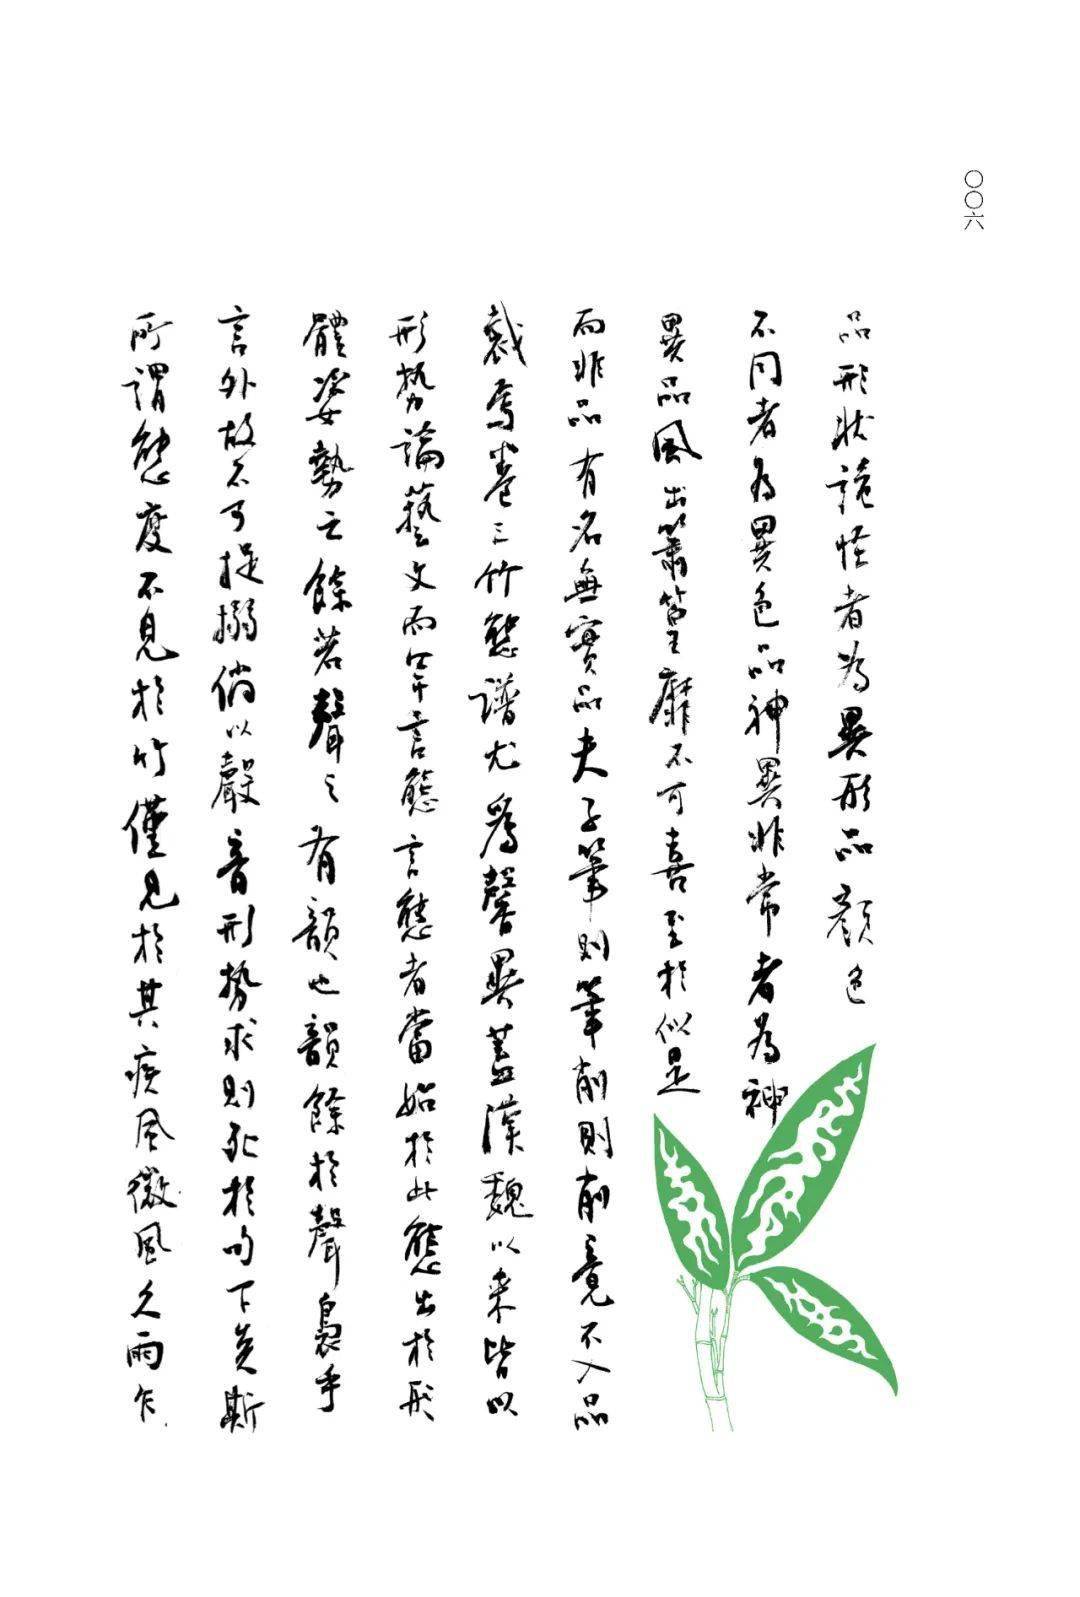 〇〇六
品形狀詭怪者為異形品顏色
不同者為異色品神異非常者為神
異品風出篛篁靡不可喜至於似是
而非品有名無實品夫子筆則筆削則削竟不入品
裁焉卷三竹態譜尤為馨異蓋漢魏以來皆以
形勢論藝文而罕言態言態者當始於此態出於形
體姿勢之餘若聲之有韻也韻餘於聲裊乎
言外故不可捉搦倘以聲音形勢求則死於句下矣斯
所謂態度不見於竹僅見於其疾風微風久雨乍